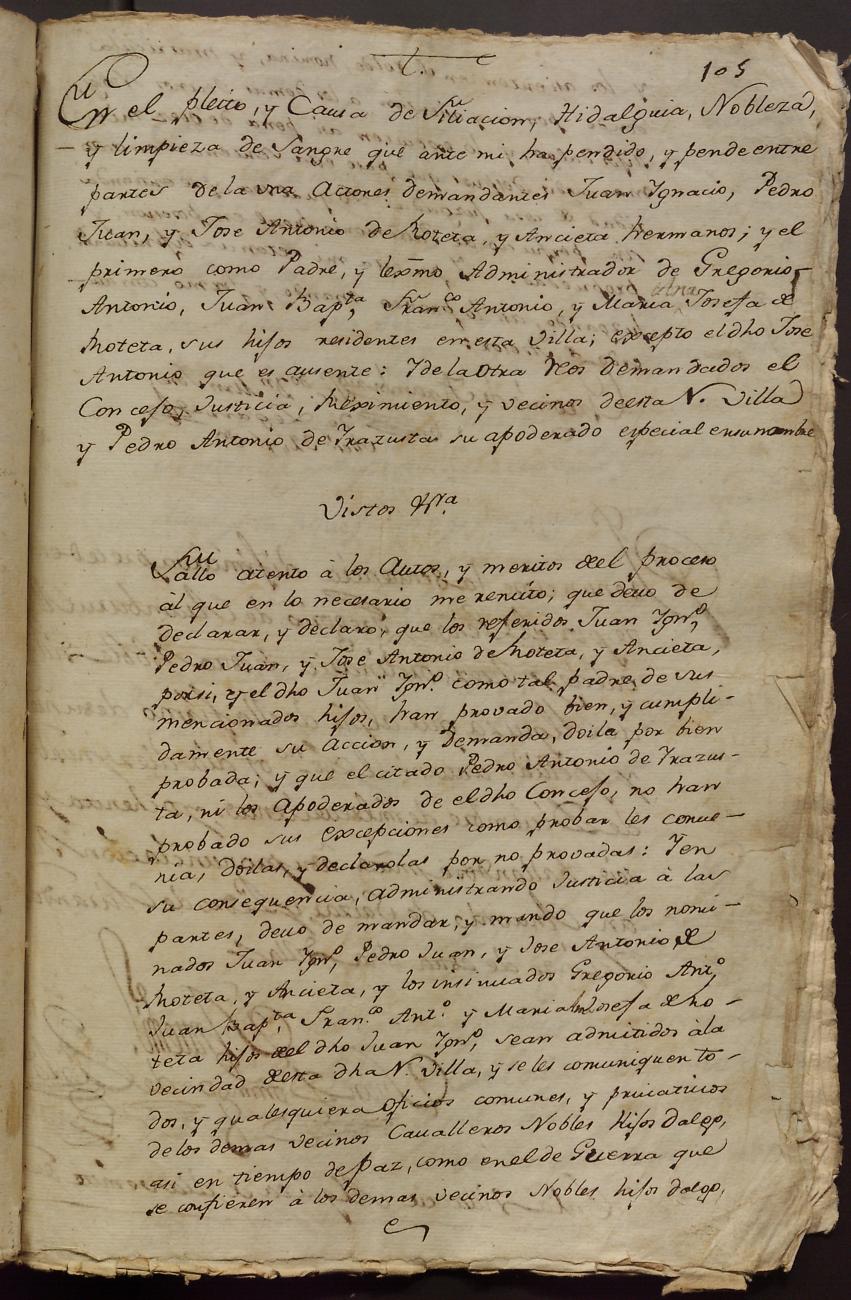 105
En el pleito, y Causa de Filiacion, Hidalguia, Nobleza,
y limpieza de Sangre que ante mi ha pendido, y pende entre
partes de la vna Actores demandantes Juan Ygnacio, Pedro
Juan, y Jose Antonio de Roteta, y Ancieta hermanos; y el
primero como Padre, y lexmo Administrador de Gregorio
Antonio, Juan Bapta, Franco Antonio, y Maria Josefa de
Roteta, sus hijos residentes en esta Villa; excepto el dho Jose
Antonio que es ausente: Y de la otra Reos demandados el
Concejo, Justicia, Reximiento, y vecinos de esta N. Villa
y Pedro Antonio de Yrazusta su apoderado especial en su nombre
Vistos &ra
Fallo atento à los Autos, y meritos del proceso
àl que en lo necesario me remito; que devo de
declarar, y declaro, que los referidos Juan Ygno,
Pedro Juan, y Jose Antonio de Roteta, y Ancieta,
por si, y el dho Juan Ygno como tal padre de sus
mencionados hijos, han provado bien, y cumpli-
damente su Accion, y Demanda, doila por bien
probada; y que el citado Pedro Antonio de Yrazus-
ta, ni los Apoderados de el dho Concejo, no han
probado sus excepciones como probar les conve-
nia, doilas, y declarolas por no provadas: Y en
su consequencia, administrando Justicia à las
partes, devo de mandar, y mando que los nomi-
nados Juan Ygno, Pedro Juan, y Jose Antonio de
Roteta, y Ancieta, y los insinuados Gregorio Anto,
Juan Bapta, Franco Anto y Maria Josefa de Ro-
teta hijos del dho Juan Ygno, sean admitidos à la
vecindad de esta dha N. Villa, y se les comuniquen to-
dos, y qualesquiera oficios comunes, y privativos
de los demas vecinos Cavalleros Nobles hijos dalgo,
asi en tiempo de Paz, como en el de Guerra que
se confieren à los demas vecinos Nobles hijos dalgo,